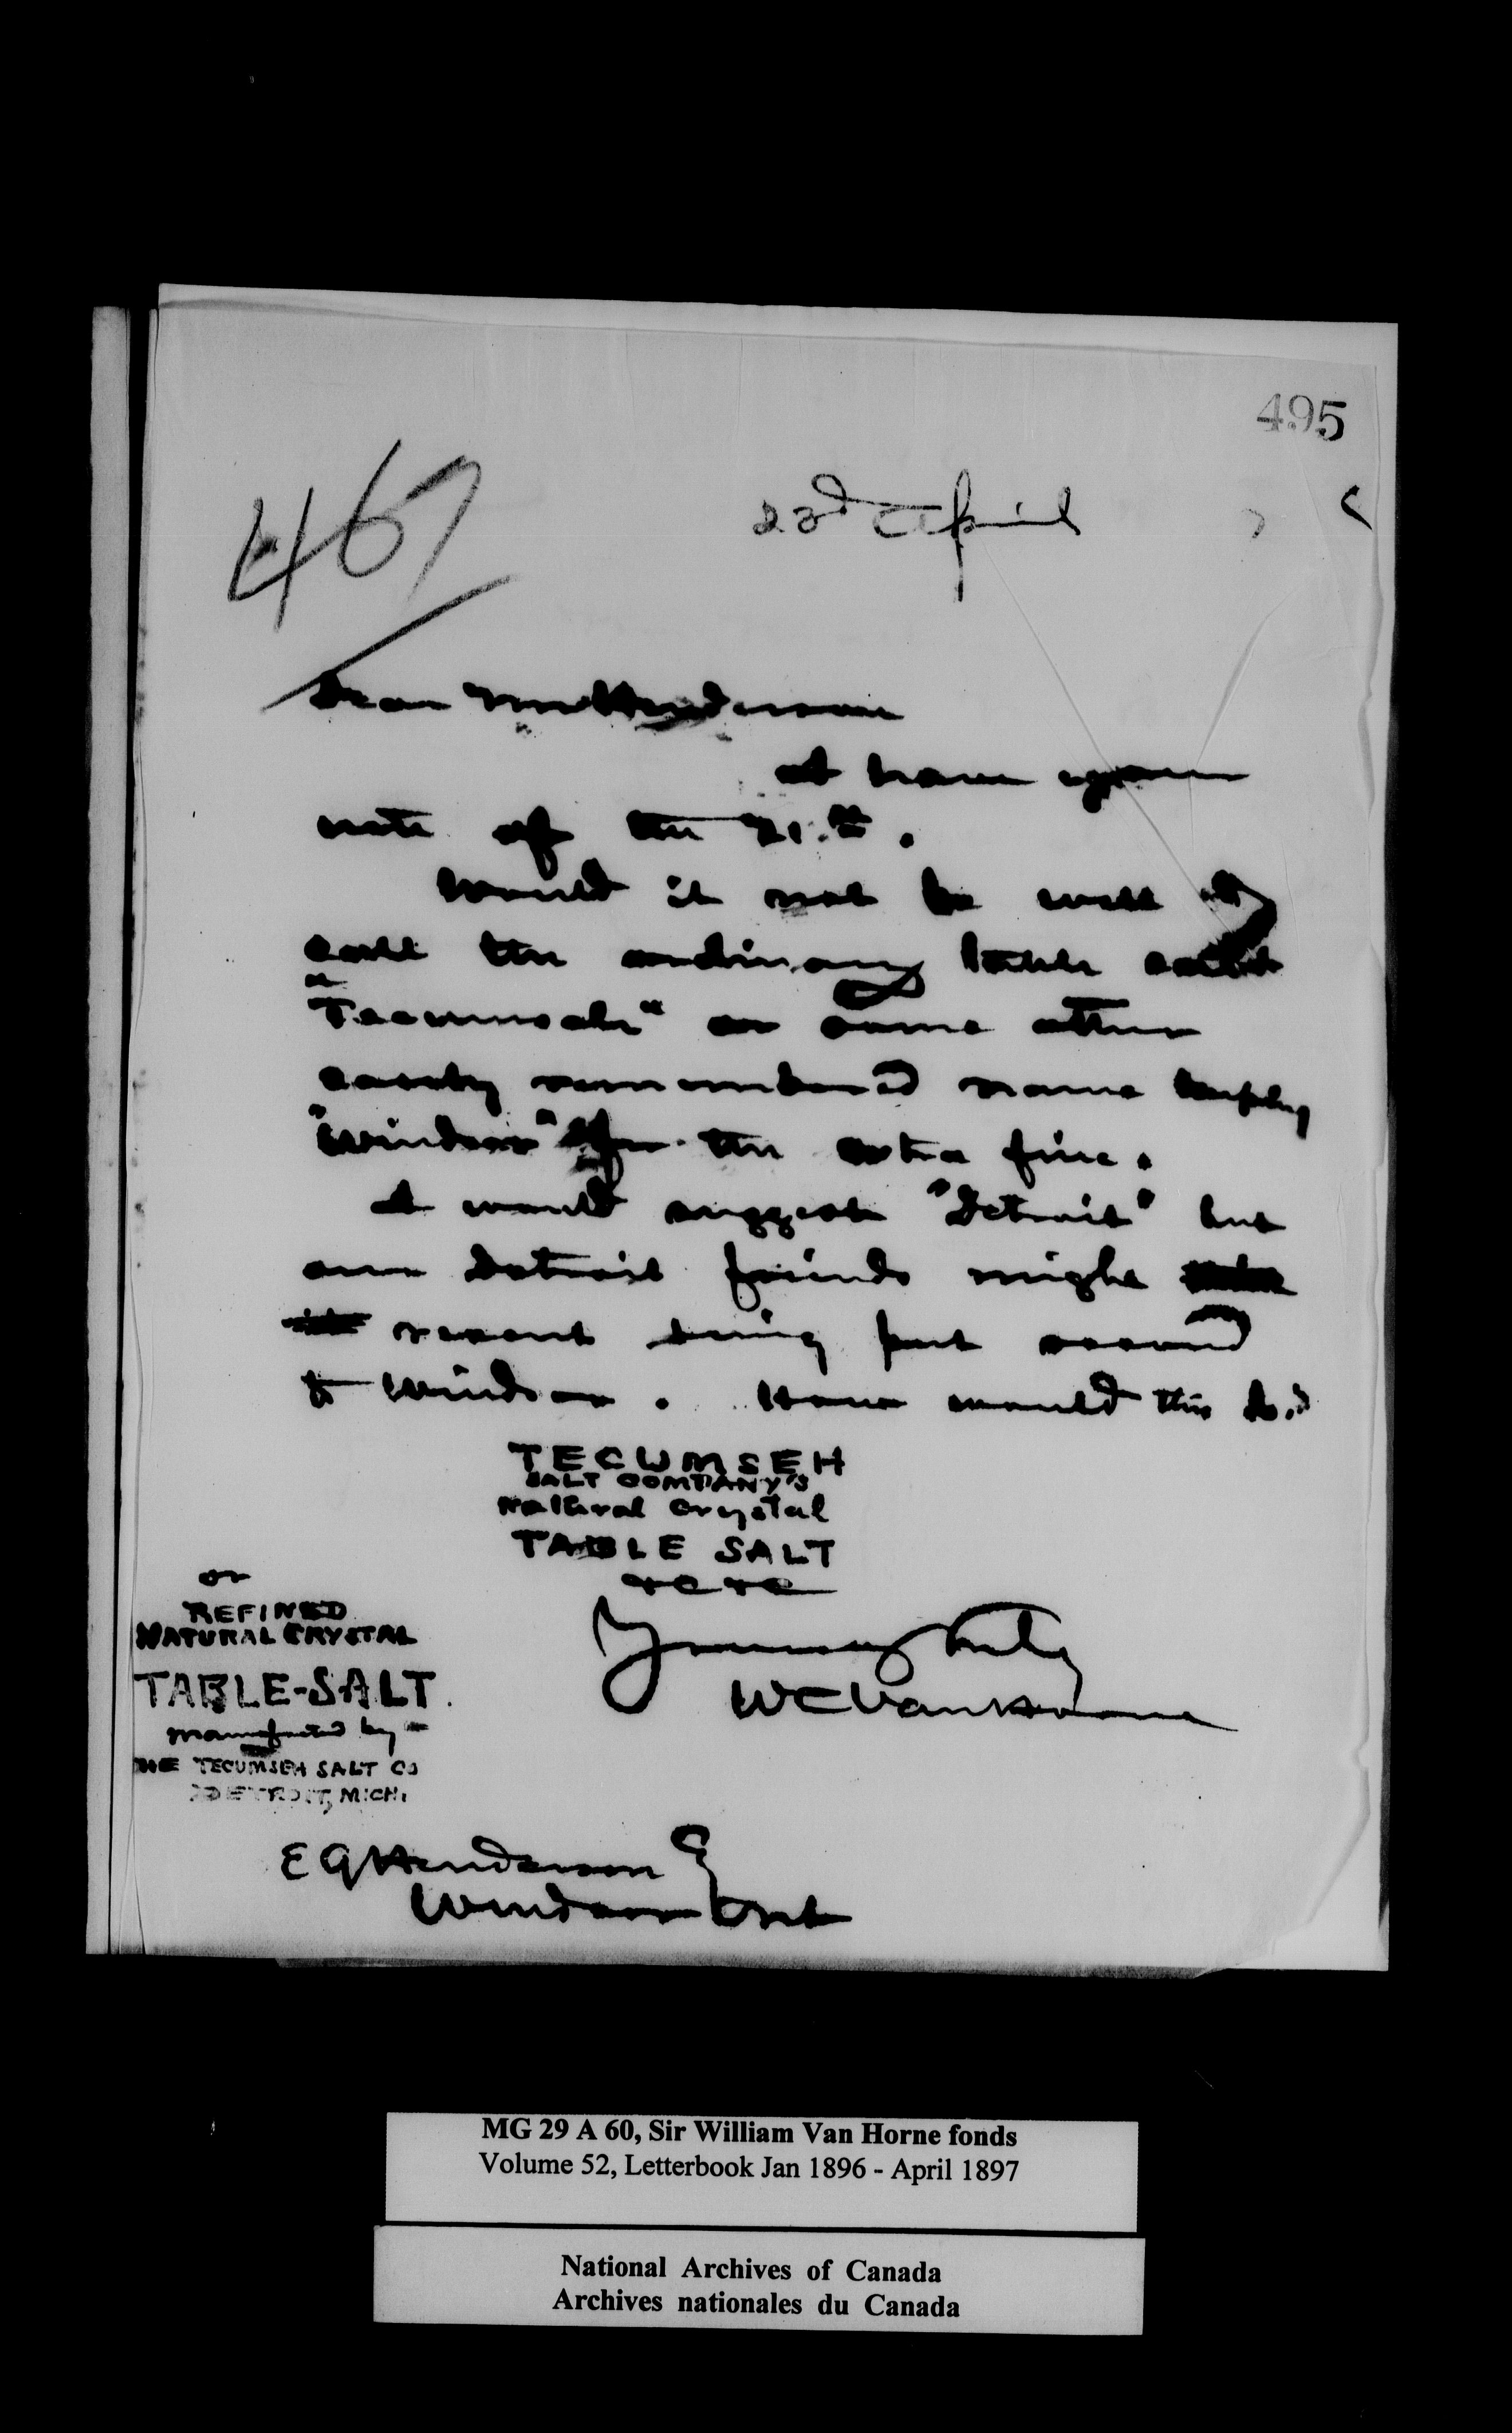 495
467
23d April 6
Dear Mr Henderson
I have your
note of the 21st.
Would it not be well to
call the ordinary table salt
"Tecumseh" or some other
easily remembered name keeping
"Windsor" for the extra fine.
I would suggest "Detroit" but
our Detroit friends might
resent being put second
to Windsor. How would this do?
TECUMSEH
SALT COMPANY'S
Natural Crystal
TABLE SALT
&c &c
or
REFINED
NATURAL CRYSTAL
TABLE-SALT.
Manufacted by
THE TECUMSEH SALT CO
DETROIT, MICH.
Yours truly
W C Van Horne
E G Henderson Eq
Windsor Ont
MG 29 A 60, Sir William Van Horne fonds
Volume 52, Letterbook Jan 1896 - April 1897
National Archives of Canada
Archives nationales du Canada